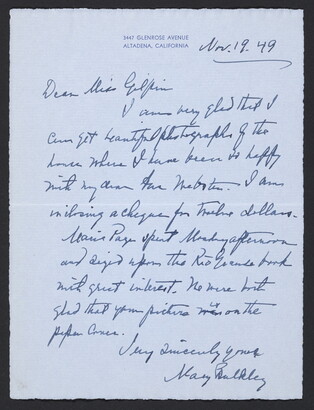 3447 GLENROSE AVENUE
ALTADENA, CALIFORNIA
Nov. 19. 49
Dear Miss Gilpin
I am very glad that I
can get beautiful photographs of the
house where I have been so happy
with my dear Websters. I am
inclosing a cheque for twelve dollars.
Page spent Monday afternoon
and seized upon the Rio Grande book
with great interest. We were both
glad that your picture was on the
paper cover.
Very sincerely yours
Mary Bulkley